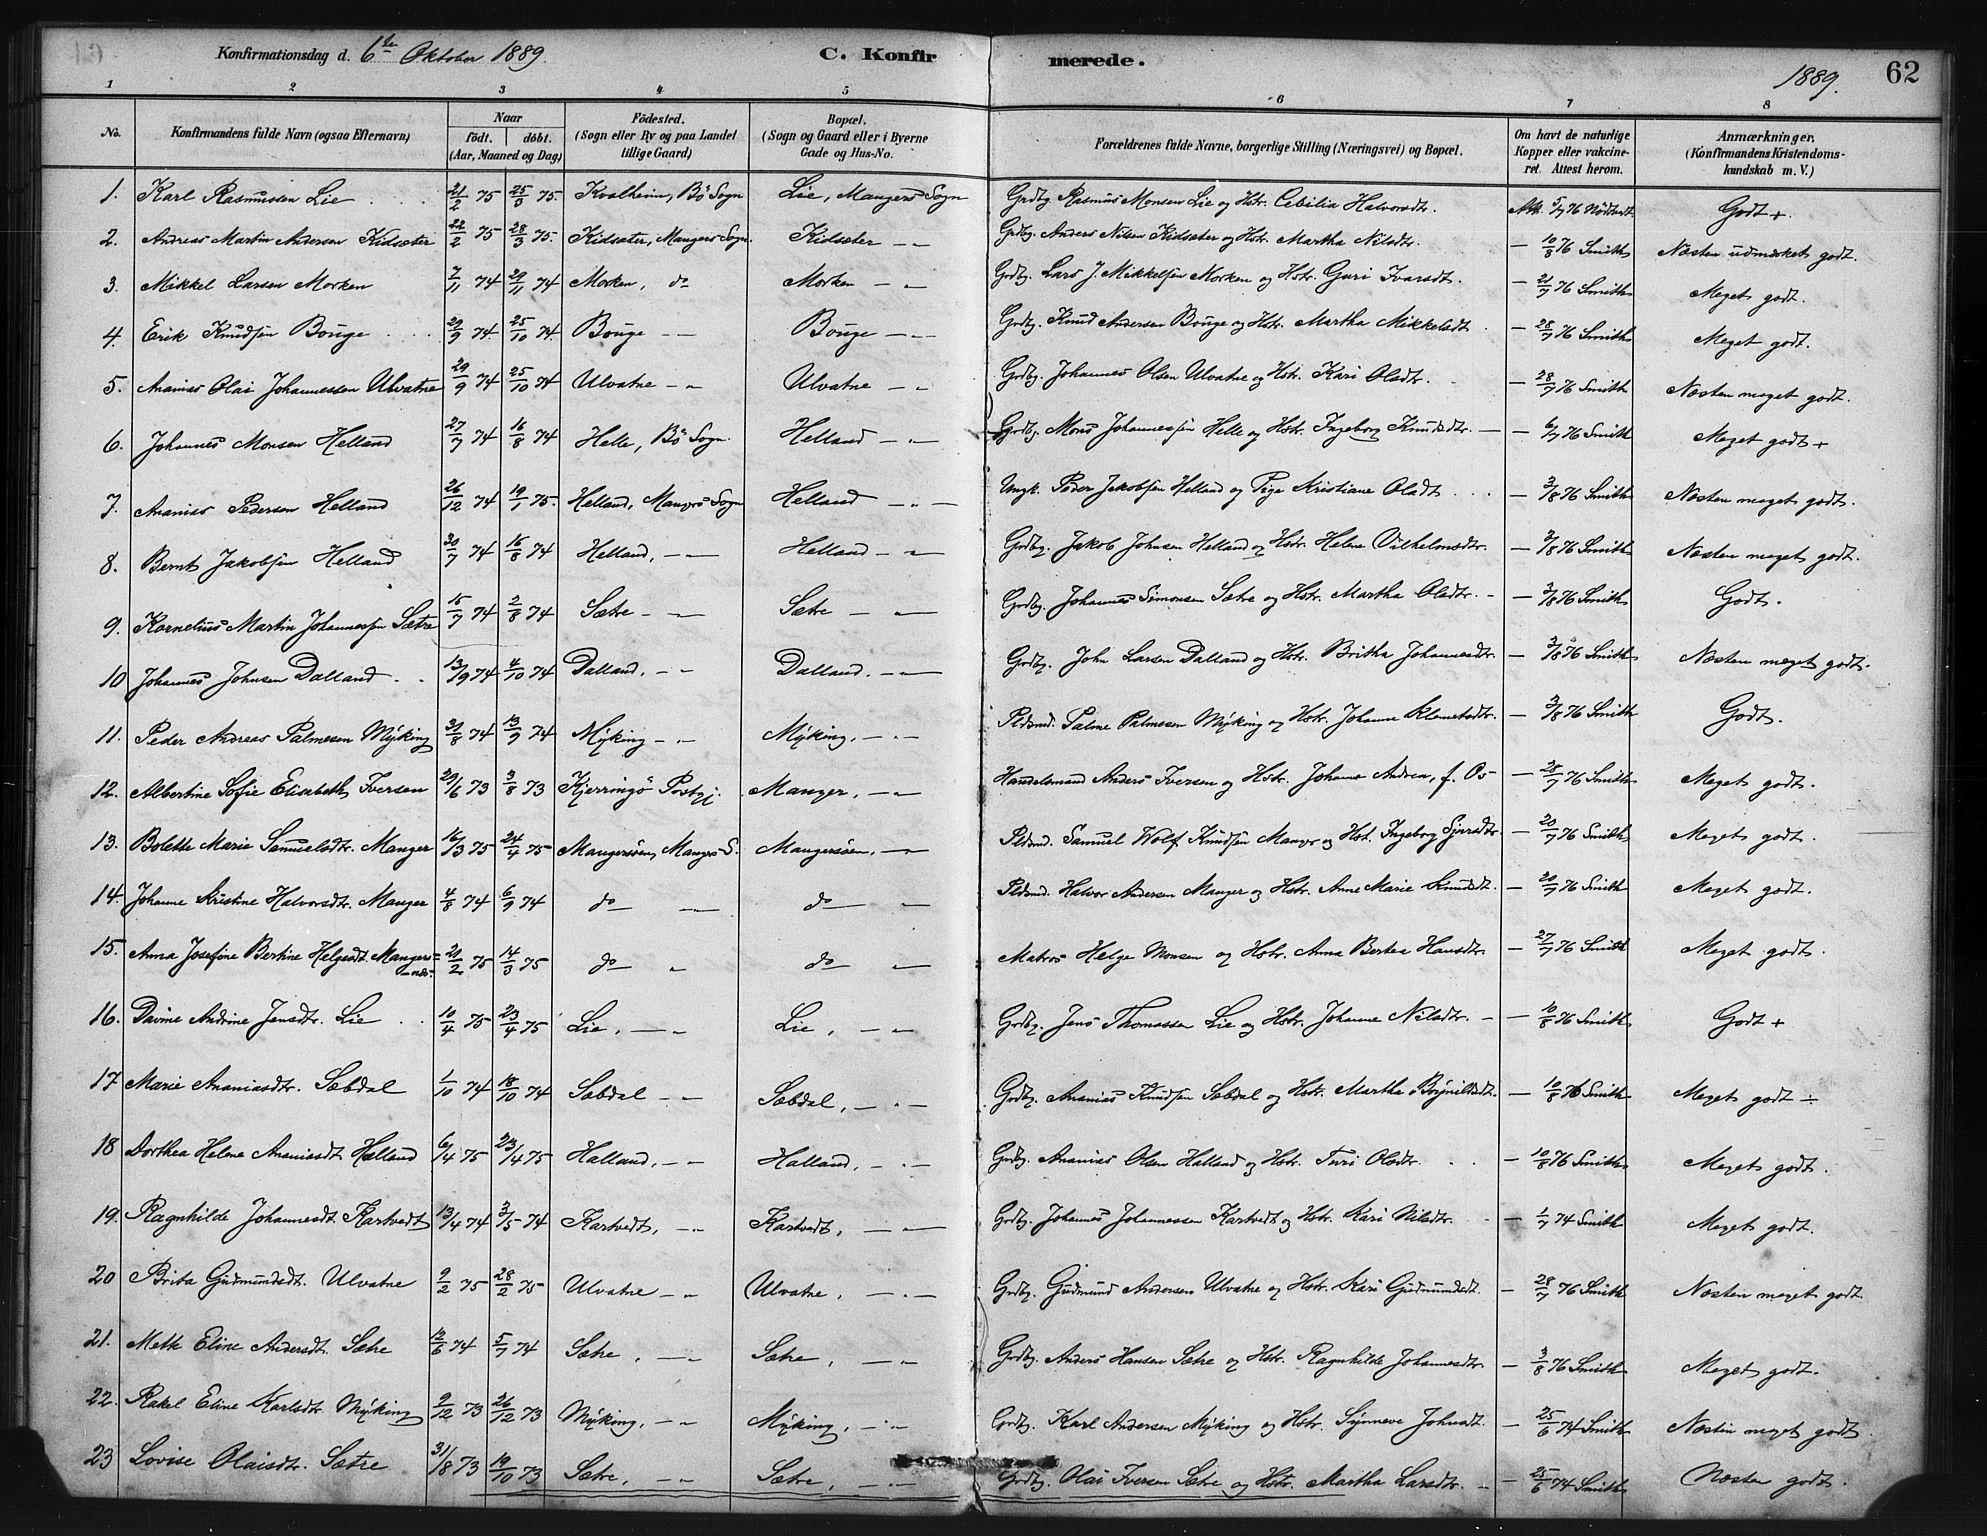 Konfirmationsdag d. 6te Oktober 1889. C. Konfirmerede. 1889. 62
1 2 3 4 5 6 7 8
No. Konfirmandens fulde Navn (ogsaa Efternavn) Naar født. døbt. (Aar, Maaned og Dag) Fødested. (Sogn eller By og paa Landet tillige Gaard) Bopæl. (Sogn og Gaard eller i Byerne Gade og Hus-No. Forældrenes fulde Navne, borgerlige Stilling (Næringsvei) og Bopæl. Om havt de naturlige Kopper eller vakcineret. Attest herom. Anmærkninger, (Konfirmandens Kristendomskundskab m. V.)
1. Karl Rasmussen Lie 21/2 75 25/3 75. Kvalheim, Bø Sogn Lie, Mangers Sogn Grdbg. Rasmus Monsen Lie og Hstr. Cebilia Halvorsdtr. Att. 5/7 76 Nødtvedt Godt +.
2. Andreas Martin Andersen Kidsæter 22/2 75 28/3 75. Kidsæter, Mangers Sogn. Kidsæter – „ – Grdbg. Anders Nilsen Kidsæter og Hstr. Martha Nilsdtr. – 10/8 76 Smith Næsten udmærket godt.
3. Mikkel Larsen Morken 7/11 74 29/11 74 Morken, do Morken – „ – Grdbg. Lars J. Mikkelsen Morken og Hstr. Guri Ivarsdt. – 21/7 76 Smith Meget godt.
4. Erik Knudsen Bouge 29/9 74. 25/10 74. Bouge – „ – Bouge – „ – Grdbg. Knud Andersen Bouge og Hstr. Martha Mikkelsdt – 28/7 76 Smith Meget godt.
5. Ananias Olai Johannessen Ulvatne 29/9 74 25/10 74 Ulvatne – „ Ulvatne – „ Grdbg. Johannes Olsen Ulvatne og Hstr. Kari Olsdtr. – 28/7 76 Smith Næsten meget godt.
6. Johannes Monsen Helland 27/7 74 16/8 74 Helle, Bø Sogn. Helland – „ – Grdbg. Mons Johannessen Helle og Hstr. Ingeborg Knudsdtr. – 6/7 76 Smith Meget godt +
7. Ananias Pedersen Helland 26/12 74 19/1 75. Helland, Mangers Sogn Helland – „ – Ungk. Peder Jakobsen Helland og Pige Kristiane Olsdt – 3/8 76 Smith Næsten meget godt.
8. Bernt Jakobsen Helland 30/7 74 16/8 74 Helland, – „ – Helland – „ Grdbg. Jakob Johnsen Helland og Hstr. Helene Vilhelmsdtr. – 3/8 76 Smith Næsten meget godt.
9. Kornelius Martin Johannessen Sætre 15/7 74 2/8 74 Sætre – „ – Sætre – „ – Grdbg. Johannes Simonsen Sætre og Hstr. Martha Olsdtr. – – 3/8 76 Smith Godt.
10 Johannes Johnsen Dalland 13/9 74 4/10 74 Dalland. – „ Dalland. – „ – Grdbg. John Larsen Dalland og Hstr. Britha Johannesdtr. – 3/8 76 Smith Næsten meget godt.
11. Peder Andreas Palmesen Myking 31/8 74 13/9 74 Myking – „ Myking, – „ – Pldsmd. Palme Palmesen Myking og Hstr. Johanne Klemetsdtr. – 3/8 76 Smith Godt.
12. Albertine Sofie Elisabeth Iversen 29/6 73 3/8 73 Kjerringø Præstgj. Manger, – „ – Handelsmand Anders Iversen og Hstr. Johanne Andrea, f. Os – 28/7 76 Smith Meget godt.
13. Bolette Marie Samuelsdtr. Manger 16/3 75 24/4 75 Mangersøen, Mangers S. Mangersøen, – „ – Pldsmd. Samuel Wolf Knudsen Manger og Hst. Ingeborg – 20/7 76 Smith Meget godt.
14. Johanne Kristine Halvorsdtr. Manger 4/8 74 6/9 74 do – „ – do – „ Pldsmd. Halvor Andersen Manger og Hstr. Anne Marie Knudsdt. – 20/7 76 Smith Meget godt.
15. Anna Josefine Bertine Helgesdt. 21/2 75 14/3 75 do „ do „ Matros Helge Monsen og Hstr. Anna Bertea Hansdtr. – 27/7 76 Smith Meget godt.
16. Davine Andrine Jensdtr. Lie 10/4 75 23/4 75 Lie, – „ Lie, – „ – Grdbg. Jens Thomassen Lie og Hstr. Johanne Nilsdtr. – – 10/8 76 Smith Godt +
17 Marie Ananiasdtr. Sæbdal 1/10 74 18/10 74 Sæbdal – „ Sæbdal, – „ – Grdbg. Ananias Knudsen Sæbdal og Hstr. Martha – 10/8 76 Smith Meget godt ÷
18 Dorthea Helene Ananiasdt. Halland 6/4 75 23/4 75 Halland, – „ Halland, – „ – Grdbg. Ananias Olsen Halland og Hstr. Turi Olsdtr. – 10/8 76 Smith Meget godt.
19. Ragnhilde Johannesdt. Kartvedt 13/4 74 3/5 74 Kartvedt, – „ Kartvedt, – „ – Grdbg. Johannes Johannessen Kartvedt og Hstr. Kari Nilsdtr. – 1/7 74 Smith Meget godt.
20 Brita Gudmundsdt. Ulvatne 9/2 75 28/2 75 Ulvatne – „ Ulvatne, – „ – Grdbg. Gudmund Andersen Ulvatne og Hstr. Kari Gudmundsdt. – 28/7 76 Smith Næsten meget godt
21. Mette Eline Andersdt. Sætre 12/6 74 5/7 74 Sætre, – „ Sætre, – „ – Grdbg. Anders Hansen Sætre og Hstr. Ragnhilde Johannesdtr. – 3/8 76 Smith Meget godt.
22. Rakel Eline Karlsdtr. Myking 9/12 73 26/12 73 Myking, – „ Myking, – „ – Grdbg. Karl Andersen Myking og Hstr. Synneve Johnsdt. – 25/6 74 Smith Næsten meget godt
23 Lovise Olaisdtr. Sætre 31/8 73 19/10 73 Sætre, – „ Sætre, – „ – Grdbg. Olai Iversen Sætre og Hstr. Martha Larsdtr. – – 25/6 74 Smith Næsten godt.